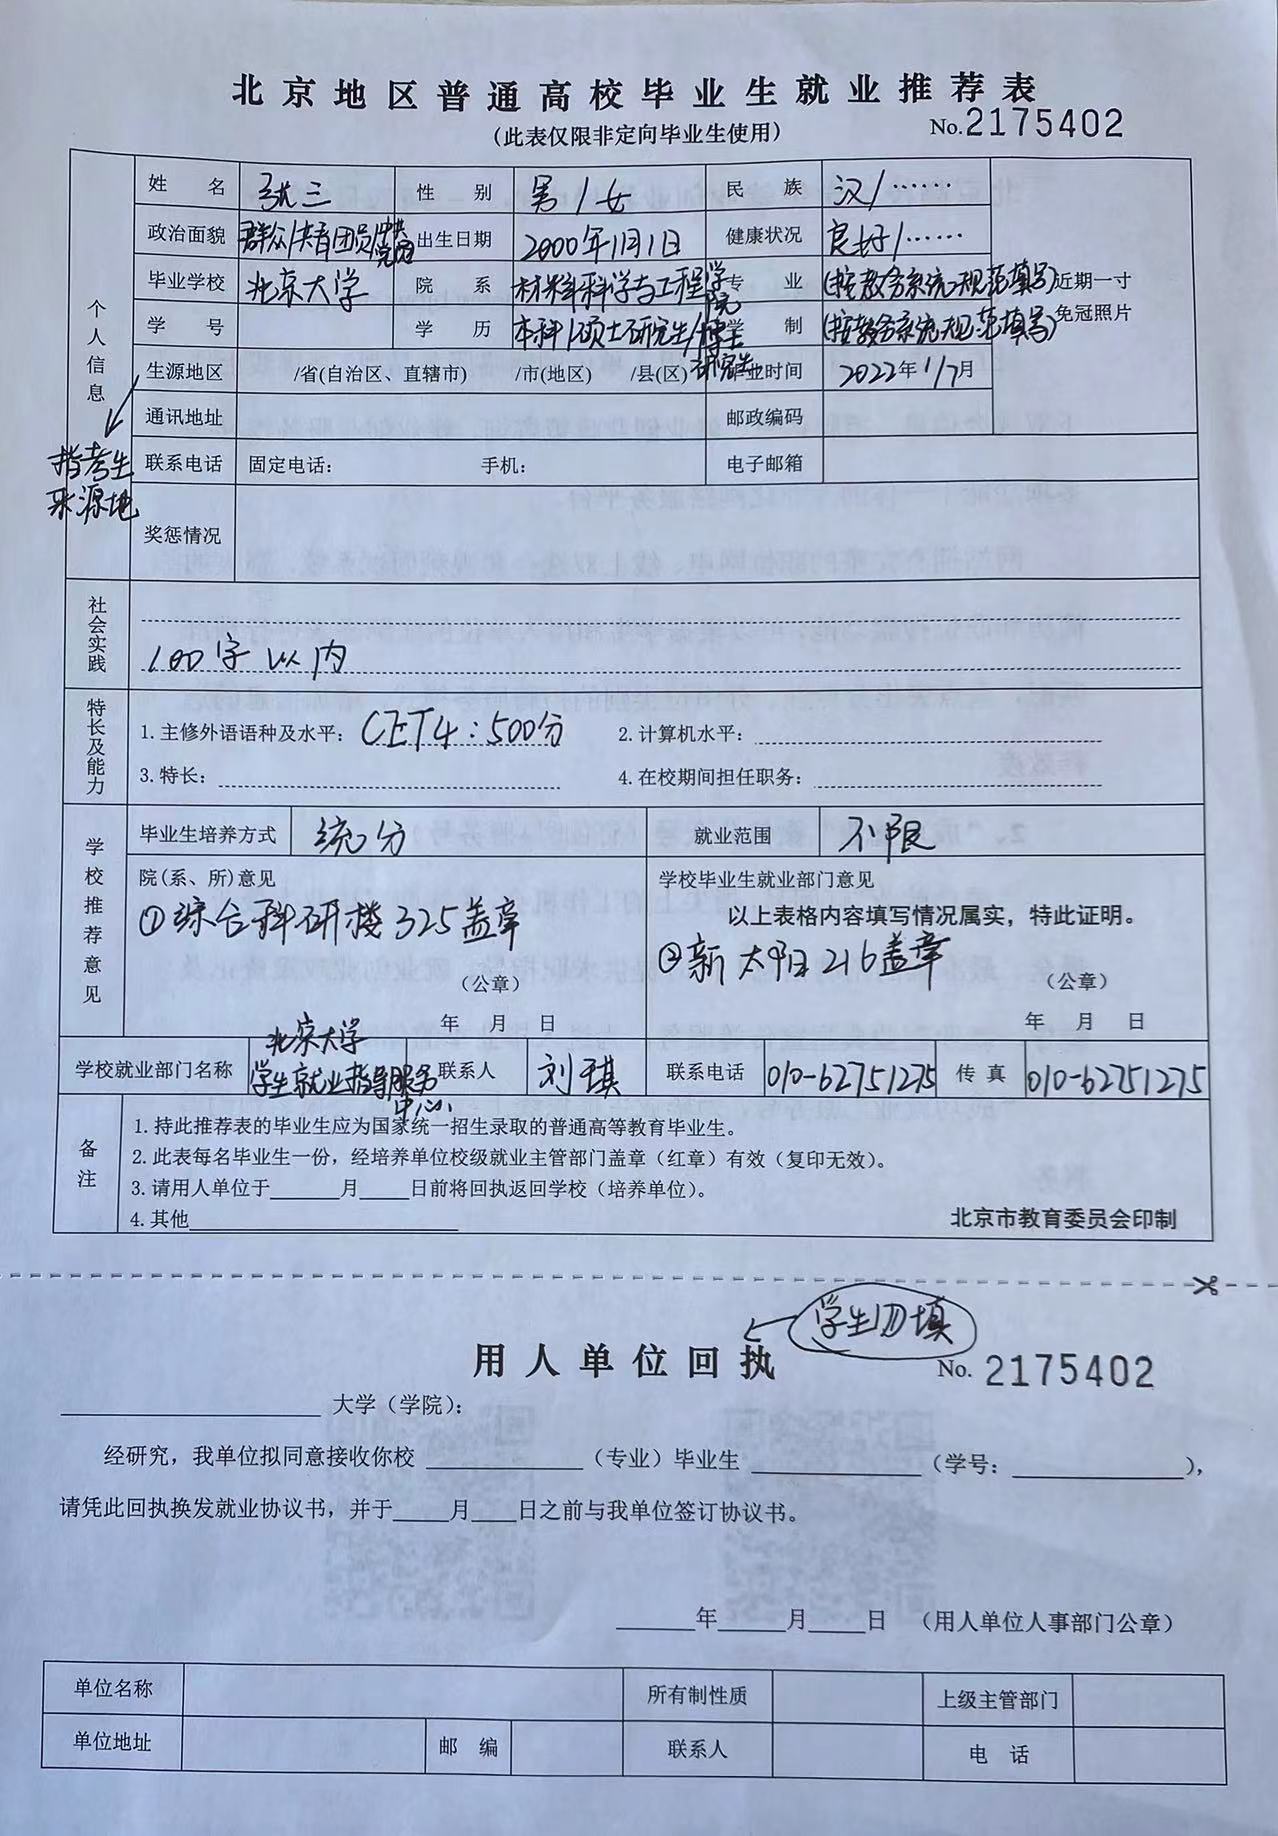 北京地区普通高校毕业生就业推荐表
（此表仅限非定向毕业生使用）
No.2175402
个人信息
姓名 张三 性别 男/女 民族 汉/……
政治面貌 群众/共青团员/中共党员 出生日期 2000年1月1日 健康状况 良好/……
毕业学校 北京大学 院系 材料科学与工程学院 专业 (按教务系统规范填写)
近期一寸
免冠照片
学号 学历 本科/硕士研究生/博士研究生 学制 (按教务系统规范填写)
生源地区 /省(自治区、直辖市) /市(地区) /县(区) 毕业时间 2022年1/7月
指考生
来源地
通讯地址 邮政编码
联系电话 固定电话： 手机： 电子邮箱
奖惩情况
社会实践
100字以内
特长及能力
1.主修外语语种及水平：CET4：500分 2.计算机水平：
3.特长： 4.在校期间担任职务：
学校推荐意见
毕业生培养方式 统分 就业范围 不限
院(系、所)意见
①综合科研楼325盖章
（公章）
年 月 日
学校毕业生就业部门意见
以上表格内容填写情况属实，特此证明。
②新太阳216盖章
（公章）
年 月 日
学校就业部门名称 北京大学学生就业指导服务中心 联系人 刘琪 联系电话 010-62751275 传真 010-62751275
备注
1.持此推荐表的毕业生应为国家统一招生录取的普通高等教育毕业生。
2.此表每名毕业生一份，经培养单位校级就业主管部门盖章（红章）有效（复印无效）。
3.请用人单位于______月____日前将回执返回学校（培养单位）。
4.其他
北京市教育委员会印制
学生勿填
用人单位回执
No. 2175402
大学（学院）：
经研究，我单位拟同意接收你校 （专业）毕业生 （学号： ），
请凭此回执换发就业协议书，并于____月____日之前与我单位签订协议书。
年 月 日 （用人单位人事部门公章）
单位名称 所有制性质 上级主管部门
单位地址 邮编 联系人 电话